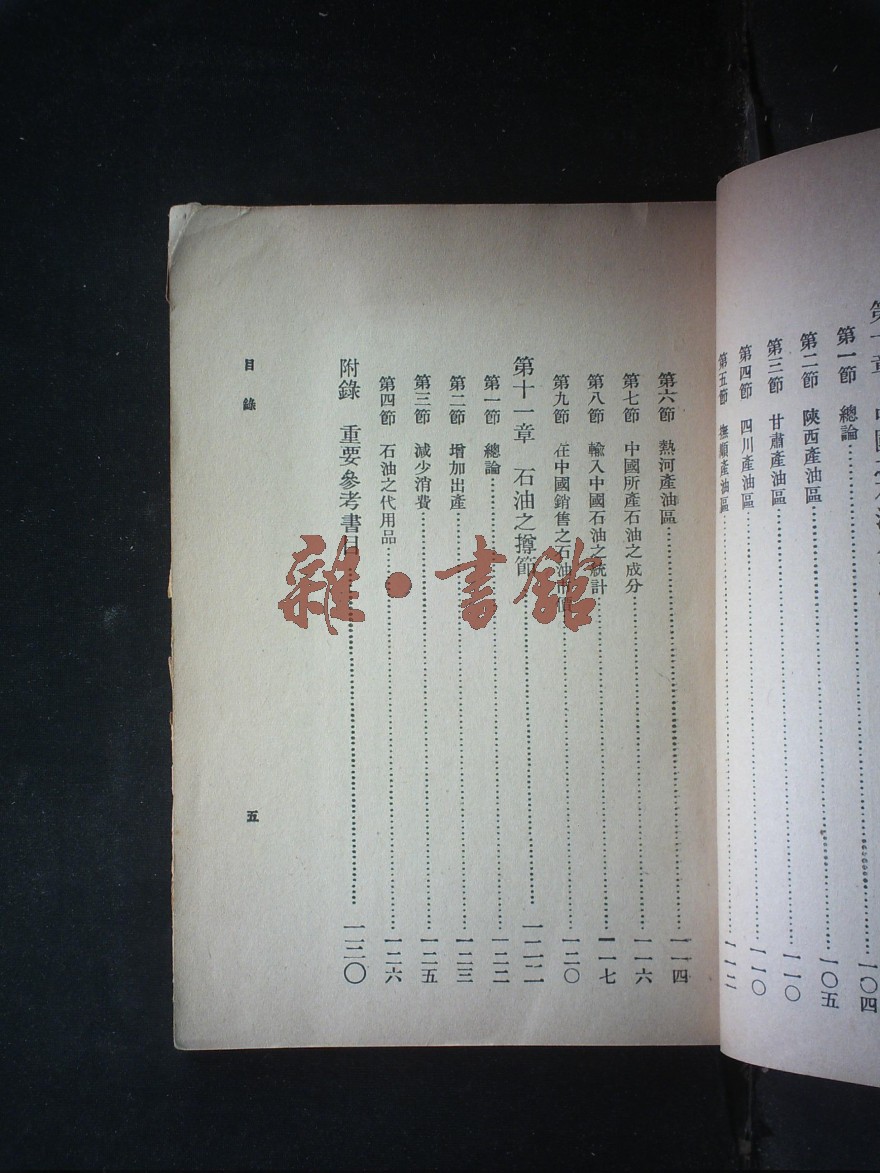 第一節 總論 一〇四
第二節 陝西產油區 一〇五
第三節 甘肅產油區 一一〇
第四節 四川產油區 一一〇
第五節 撫順產油區 一一二
第六節 熱河產油區 一一四
第七節 中國所產石油之成分 一一六
第八節 輸入中國石油之統計 一一七
第九節 在中國銷售之石油市價 一二〇
第十一章 石油之撙節 一二二
第一節 總論 一二二
第二節 增加出產 一二三
第三節 減少消費 一二五
第四節 石油之代用品 一二六
附錄 重要參考書目 一三〇
目錄
五
雜·書館